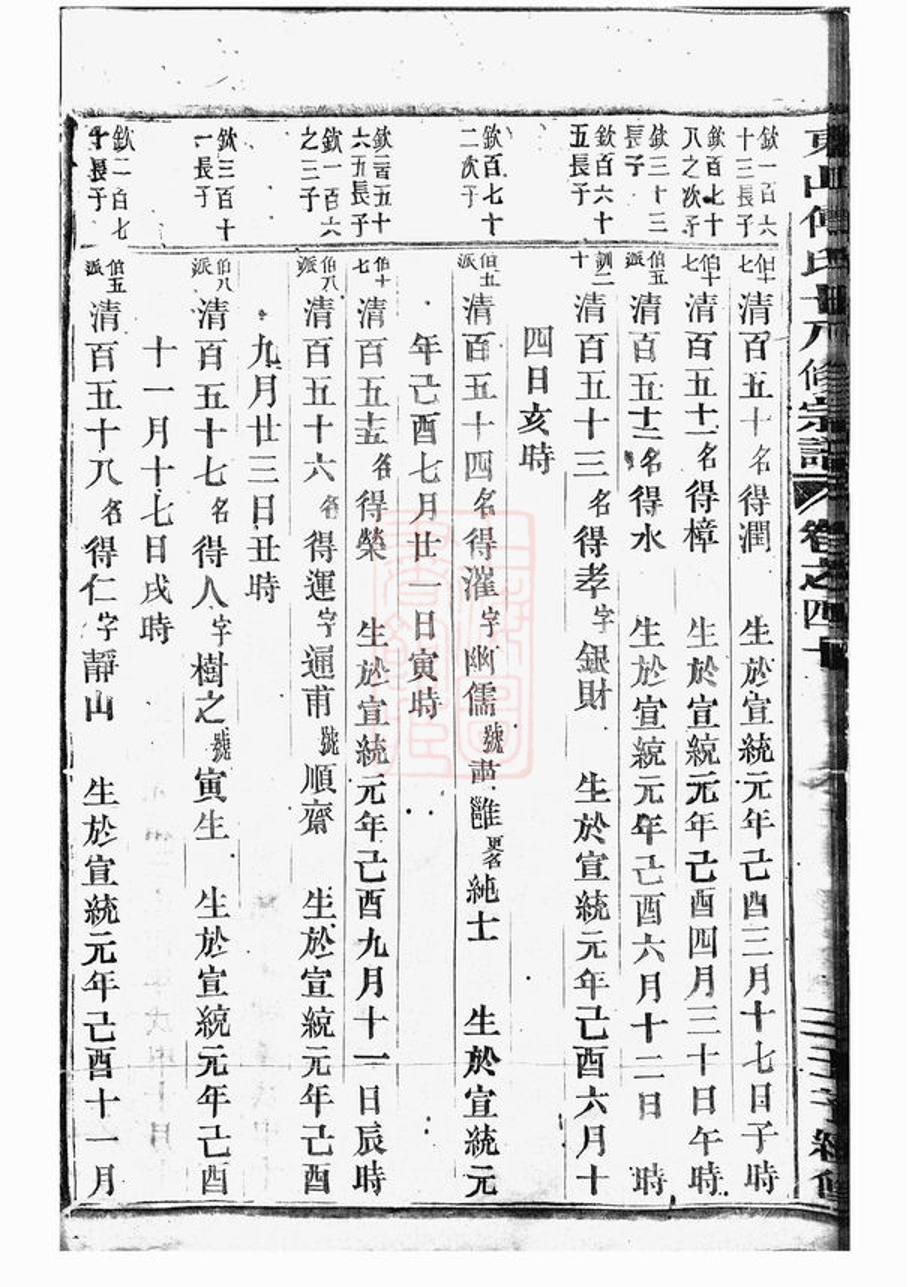 東山傅氏十八修宗譜 卷之四十
欽一百六十三長子
伯十七 清百五十 名得潤 生於宣統元年己酉三月十七日子時
欽百七十八之次子
伯十七 清百五十一 名得樟 生於宣統元年己酉四月三十日午時
欽三十三長子
伯五派 清百五十二 名得水 生於宣統元年己酉六月十二日 時
欽百六十五長子
訓二十 清百五十三 名得孝 字銀財 生於宣統元年己酉六月十
四日亥時
欽百七十二次子
伯五派 清百五十四 名得漼 字幽儒 號肅雝 更名純士 生於宣統元
年己酉七月廿一日寅時
欽二百五十六五長子
伯十七 清百五十五 名得榮 生於宣統元年己酉九月十一日辰時
欽一百六之三子
伯八派 清百五十六 名得運 字通甫 號順齋 生於宣統元年己酉
九月廿三日丑時
欽三百十一長子
伯八派 清百五十七 名得人 字樹之 號寅生 生於宣統元年己酉
十一月十七日戌時
欽二百七十長子
伯五派 清百五十八 名得仁 字靜山 生於宣統元年己酉十一月